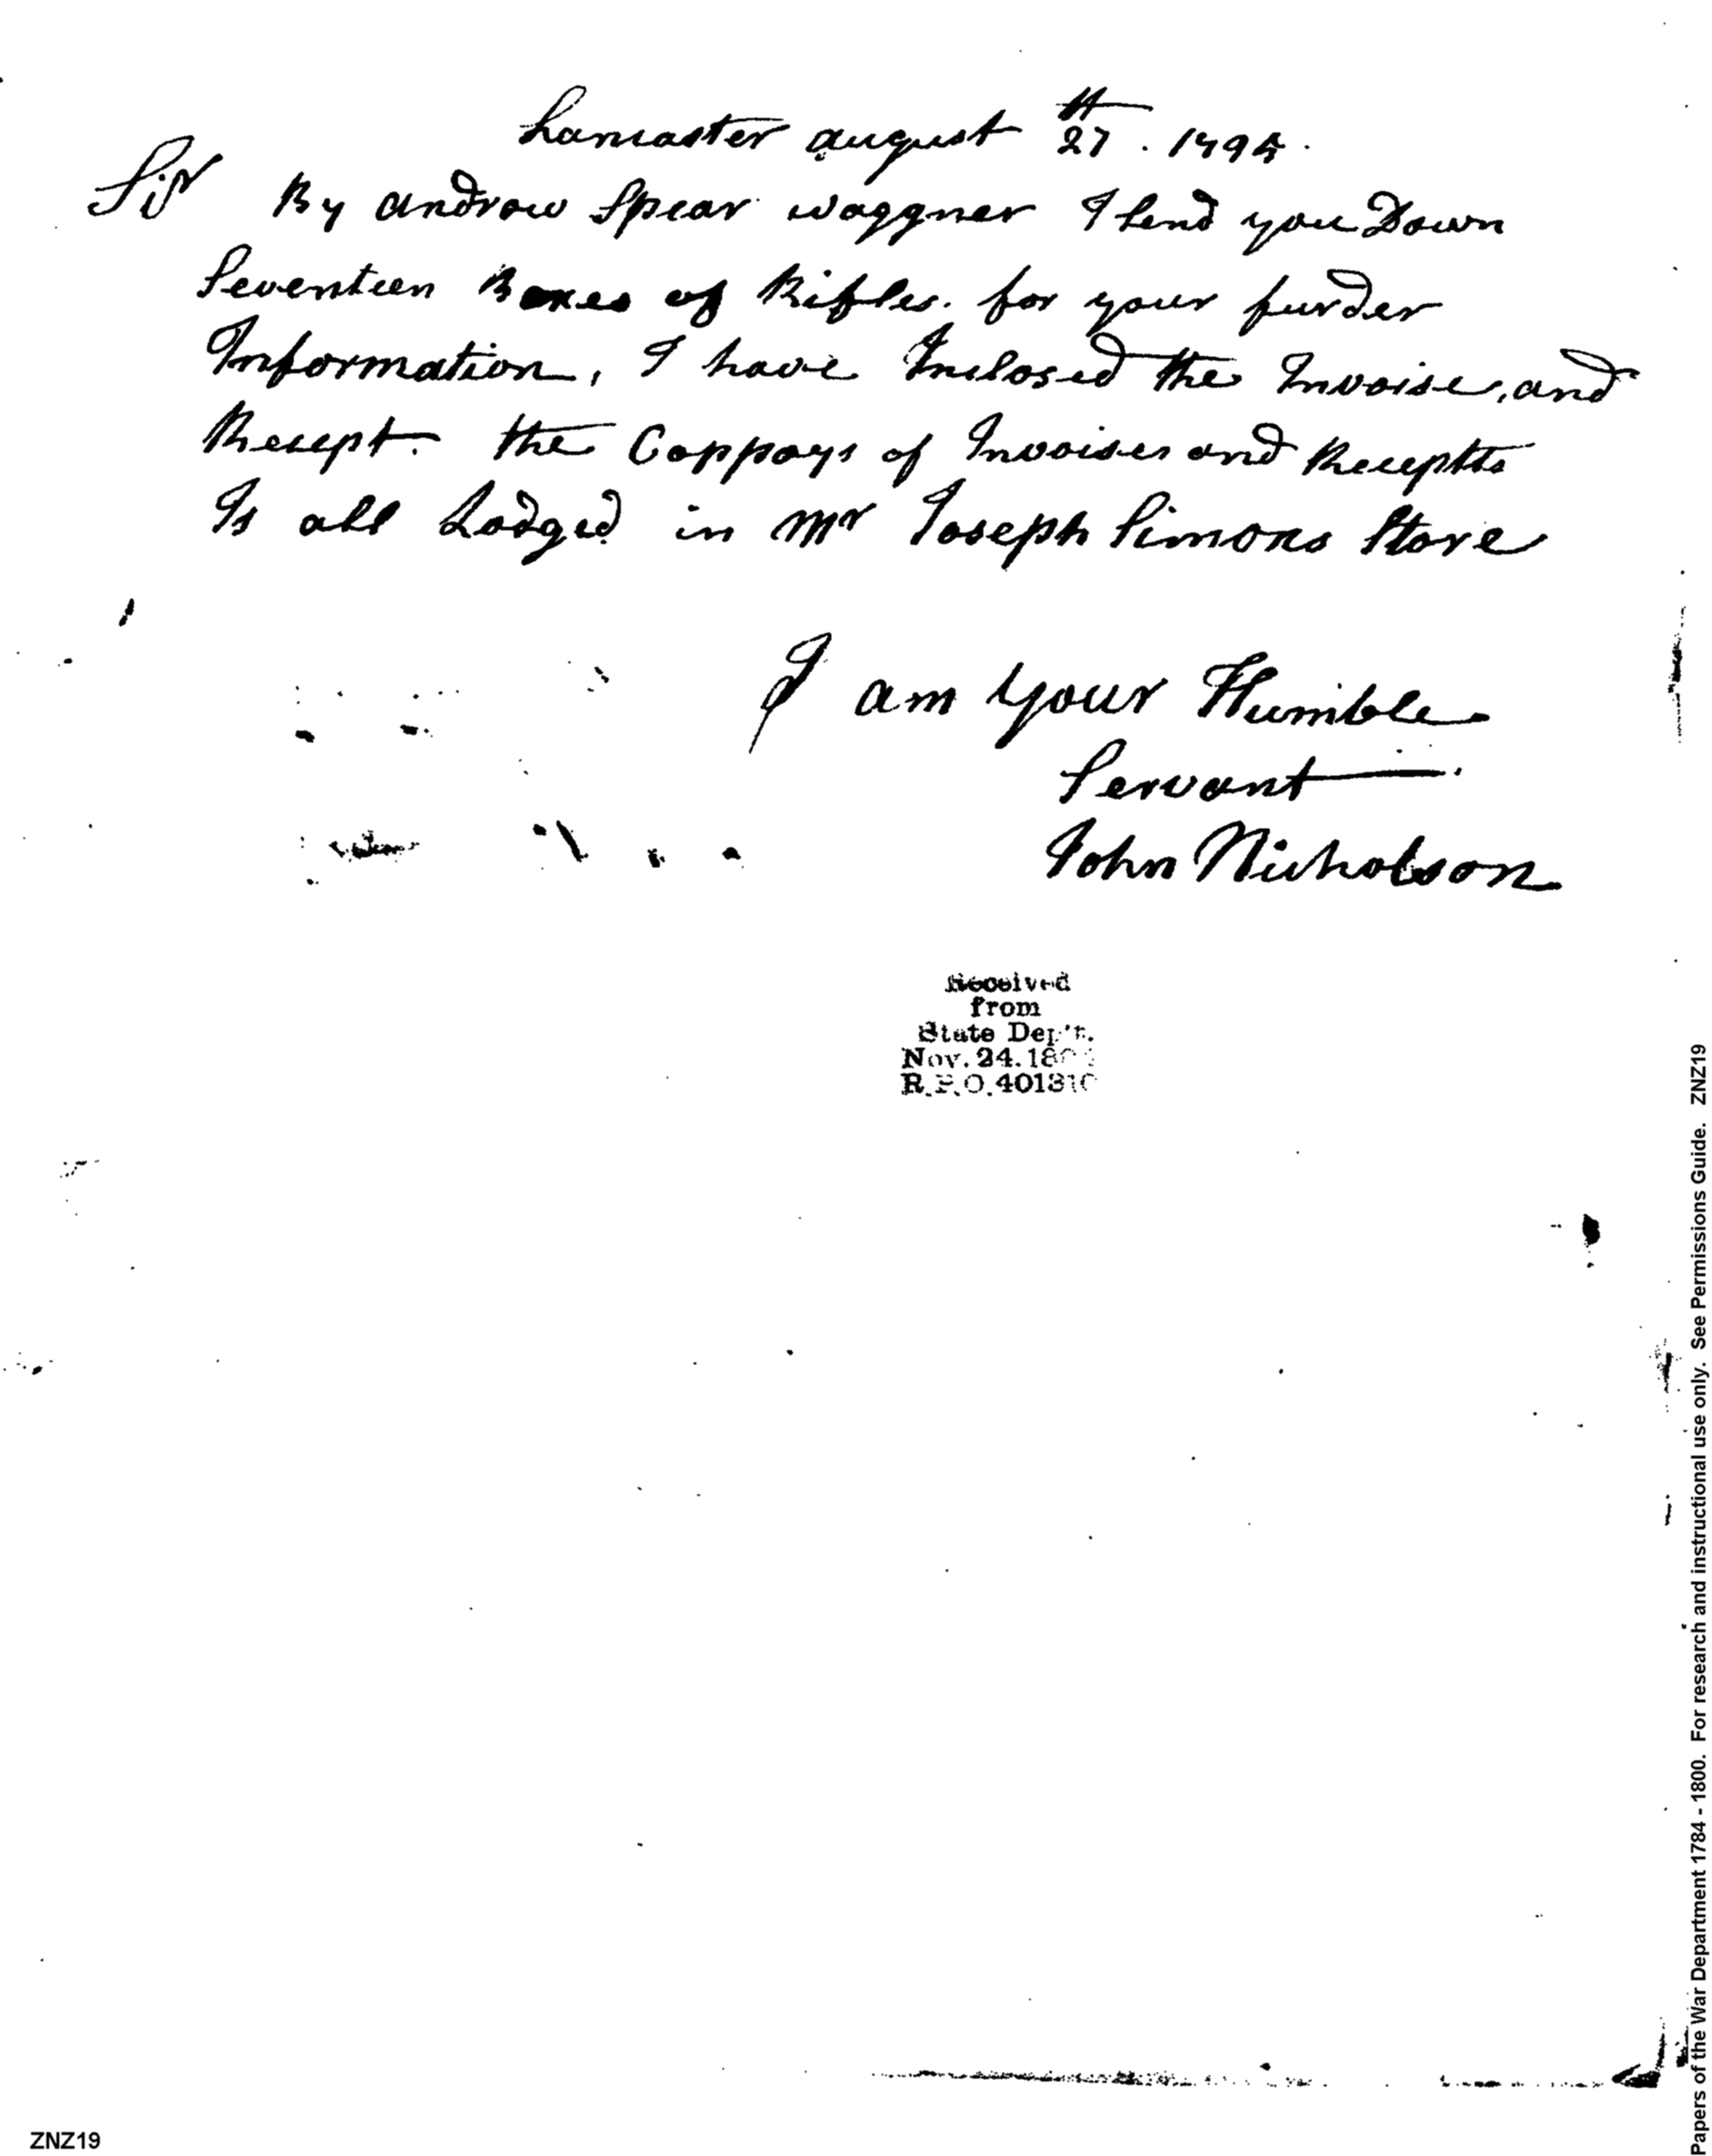 Lancaster august 27th. 1794.
Sir By androw Spear waggner I Send you Down
Seventeen Boxes of Rifles. for your furder
Information, I have Inclosed the Invoise, and
Recept. the Coppays of Invoises and Receptts
Is all Lodged in Mr Joseph Simons Store
I am your Humble
Servant
John Nicholson
Received
from
State Dep't.
Nov. 24.18
R.P.O. 401310
Papers of the War Department 1784 - 1800. For research and instructional use only. See Permissions Guide. ZNZ19
ZNZ19